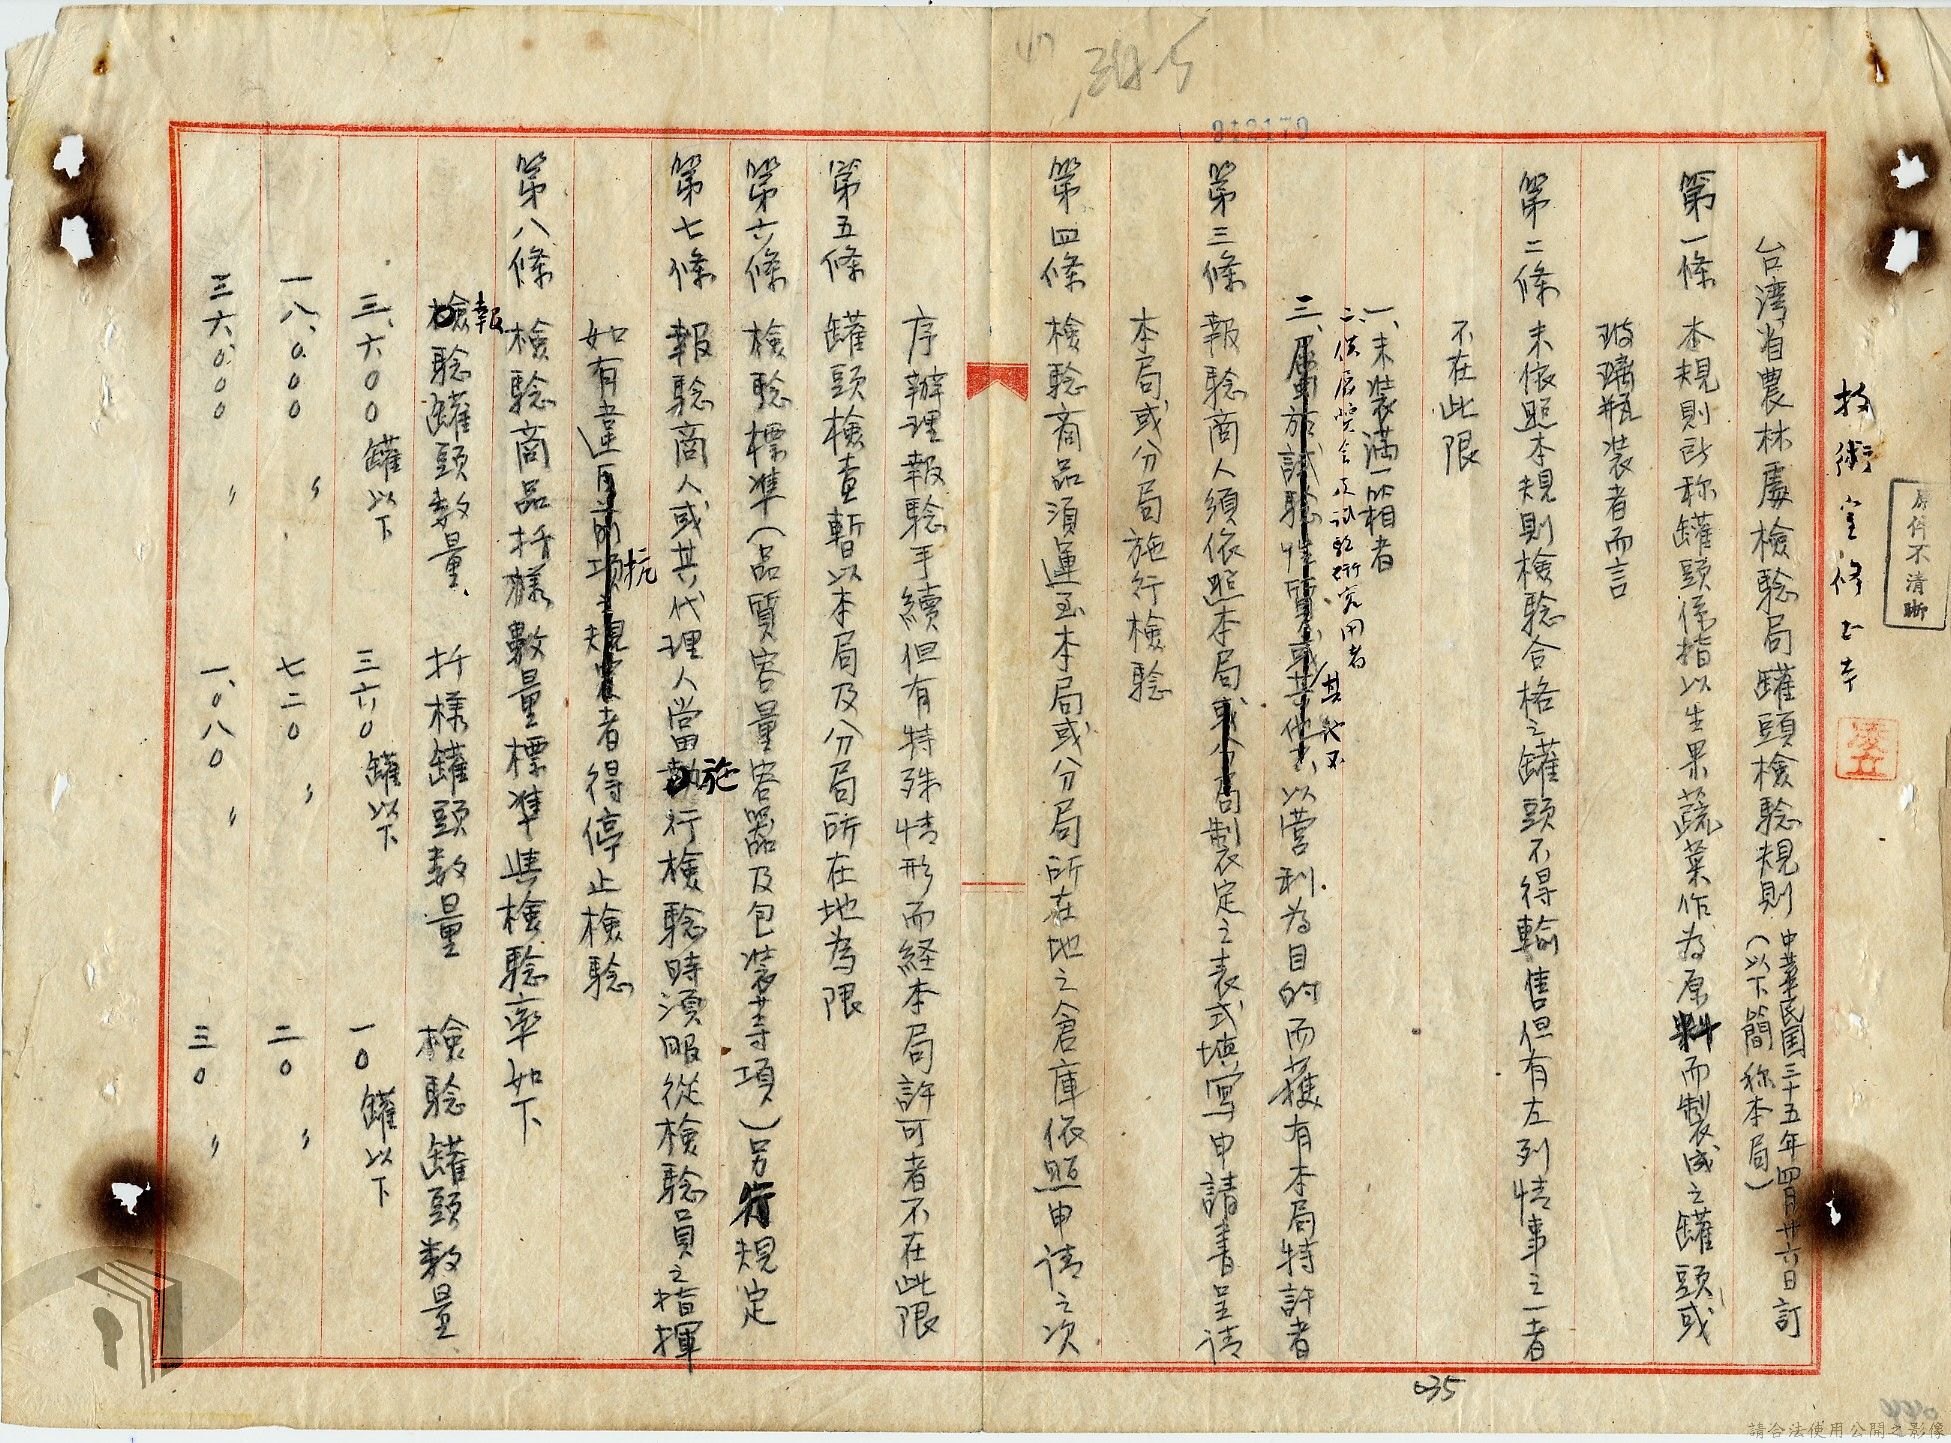 技術室修正本
原件不清晰
台湾省農林處檢驗局罐頭檢驗規則
中華民国三十五年四月廿六日訂
(以下簡称本局)
第一條 本規則所称罐頭係指以生果蔬菜作為原料而製成之罐頭或
玻璃瓶装者而言
第二條 未依照本規則檢驗合格之罐頭不得輸售但有左列情事之一者
不在此限
一、未装満一箱者
二、供展覽会及試驗研究用者
三、屬於試驗性質或其他不以営利為目的而獲有本局特許者
其他不
第三條 報驗商人須依照本局或分局製定之表式填写申請書呈请
本局或分局施行檢驗
第四條 檢驗商品須運至本局或分局所在地之倉庫依照申请之次
序辦理報驗手續但有特殊情形而経本局許可者不在此限
第五條 罐頭檢查暫以本局及分局所在地為限
第六條 檢驗標準(品質容量容器及包装等項)另行規定
第七條 報驗商人或其代理人當執行檢驗時須服從檢驗員之指揮
施
如有違反前項之規定者得停止檢驗
抗
第八條 檢驗商品扦樣數量標準與檢驗率如下
檢驗罐頭數量 扦樣罐頭數量 檢驗罐頭數量
報
三、六〇〇罐以下 三六〇罐以下 一〇罐以下
一八、〇〇〇〃 七二〇〃 二〇〃
三六、〇〇〇〃 一、〇八〇〃 三〇〃
035
請合法使用公開之影像